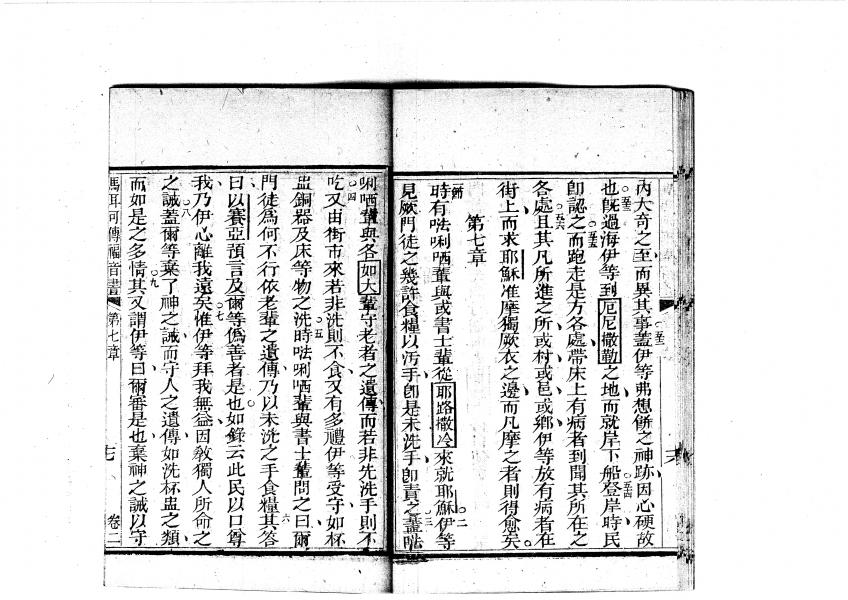 內大奇之至而異其事蓋伊等弗想餅之神跡因心硬故
也旣過海伊等到厄尼撒勒之地而就岸下船登岸時民
卽認之而跑走是方各處帶床上有病者到聞其所在之
各處且其凡所進之所或村或邑或鄉伊等放有病者在
街上而求耶穌准摩獨厥衣之邊而凡摩之者則得愈矣
第七章
時有𠵽唎哂輩與或書士輩從耶路撒冷來就耶穌伊等
見厥門徒之幾許食糧以污手卽是未洗手卽責之蓋𠵽
唎哂輩與各如大輩守老者之遺傳而若非先洗手則不
吃又由街市來若非洗則不食又有多禮伊等受守如杯
盅銅器及床等物之洗時𠵽唎哂輩與書士輩問之曰爾
門徒爲何不行依老輩之遺傳乃以未洗之手食糧其答
曰以賽亞預言及爾等僞善者是也如錄云此民以口尊
我乃伊心離我遠矣惟伊等拜我無益因教獨人所命之
之誡蓋爾等棄了神之誡而守人之遺傳如洗杯盅之類
而如是之多情其又謂伊等曰爾審是也棄神之誡以守
馬耳可傳福音書 第七章 七 卷二